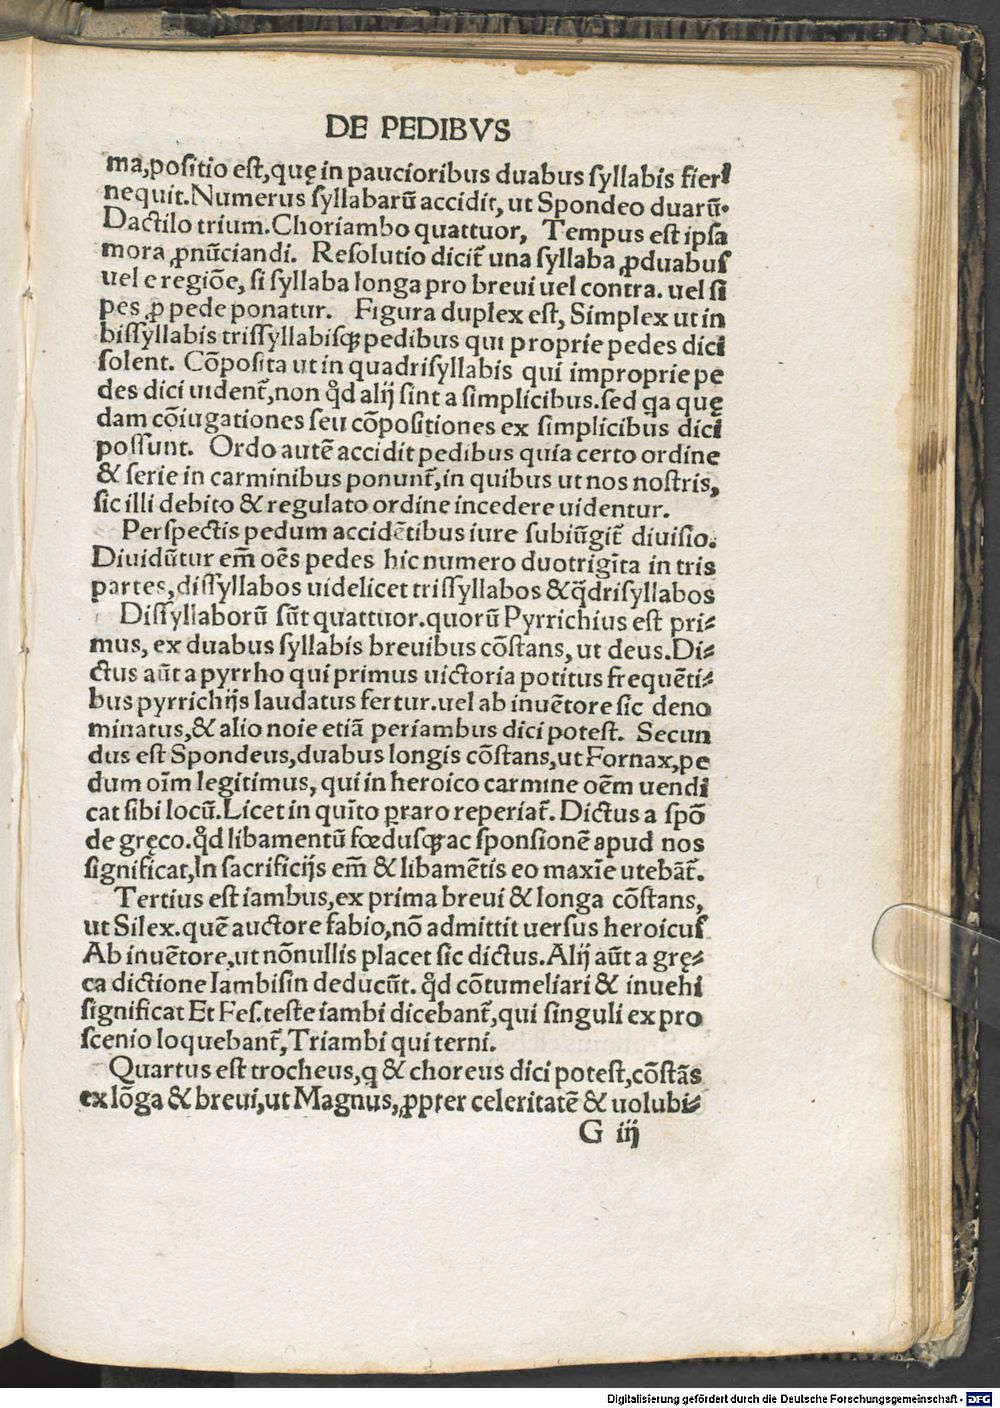 DE PEDIBVS
ma,positio est,quę in paucioribus duabus syllabis fieri
nequit.Numerus syllabarū accidit, ut Spondeo duarū.
Dactilo trium.Choriambo quattuor, Tempus est ipsa
mora ꝓnūciandi. Resolutio dicit̃ una syllaba ꝓduabus
uel e regiōe, si syllaba longa pro breui uel contra. uel si
pes ꝓ pede ponatur. Figura duplex est, Simplex ut in
bissyllabis trissyllabisqꝫ pedibus qui proprie pedes dici
solent. Cōposita ut in quadrisyllabis qui improprie pe
des dici uident̃,non qd̉ alij sint a simplicibus.sed qa quę
dam cōiugationes seu cōpositiones ex simplicibus dici
possunt. Ordo autē accidit pedibus quia certo ordine
& serie in carminibus ponunt̃,in quibus ut nos nostris,
sic illi debito & regulato ordine incedere uidentur.
Perspectis pedum accidētibus iure subiūgit̃ diuisio.
Diuidūtur em̄ oēs pedes hic numero duotrigīta in tris
partes,dissyllabos uidelicet trissyllabos &q̄drisyllabos
Dissyllaborū sūt quattuor.quorū Pyrrichius est pri⸗
mus, ex duabus syllabis breuibus cōstans, ut deus.Di⸗
ctus aūt a pyrrho qui primus uictoria potitus frequēti⸗
bus pyrrichijs laudatus fertur.uel ab inuētore sic deno
minatus,& alio noie etiā periambus dici potest. Secun
dus est Spondeus,duabus longis cōstans,ut Fornax,pe
dum oīm legitimus, qui in heroico carmine oēm uendi
cat sibi locū.Licet in quīto ꝑraro reperiat̃.Dictus a spō
de gręco.qd̉ libamentū fœdusqꝫ ac sponsionē apud nos
significat,In sacrificijs em̄ & libamētis eo maxīe utebāt̃.
Tertius est iambus,ex prima breui & longa cōstans,
ut Silex.quē auctore fabio,nō admittit uersus heroicus
Ab inuētore,ut nōnullis placet sic dictus.Alij aūt a grę⸗
ca dictione Iambisin deducūt. qd̉ cōtumeliari & inuehi
significat Et Fes.teste iambi dicebant̃,qui singuli ex pro
scenio loquebant̃,Triambi qui terni.
Quartus est trocheus,q & choreus dici potest,cōstās
ex lōga & breui,ut Magnus,ꝓpter celeritatē & uolubi⸗
G iij
Digitalisierung gefördert durch die Deutsche Forschungsgemeinschaft - DFG